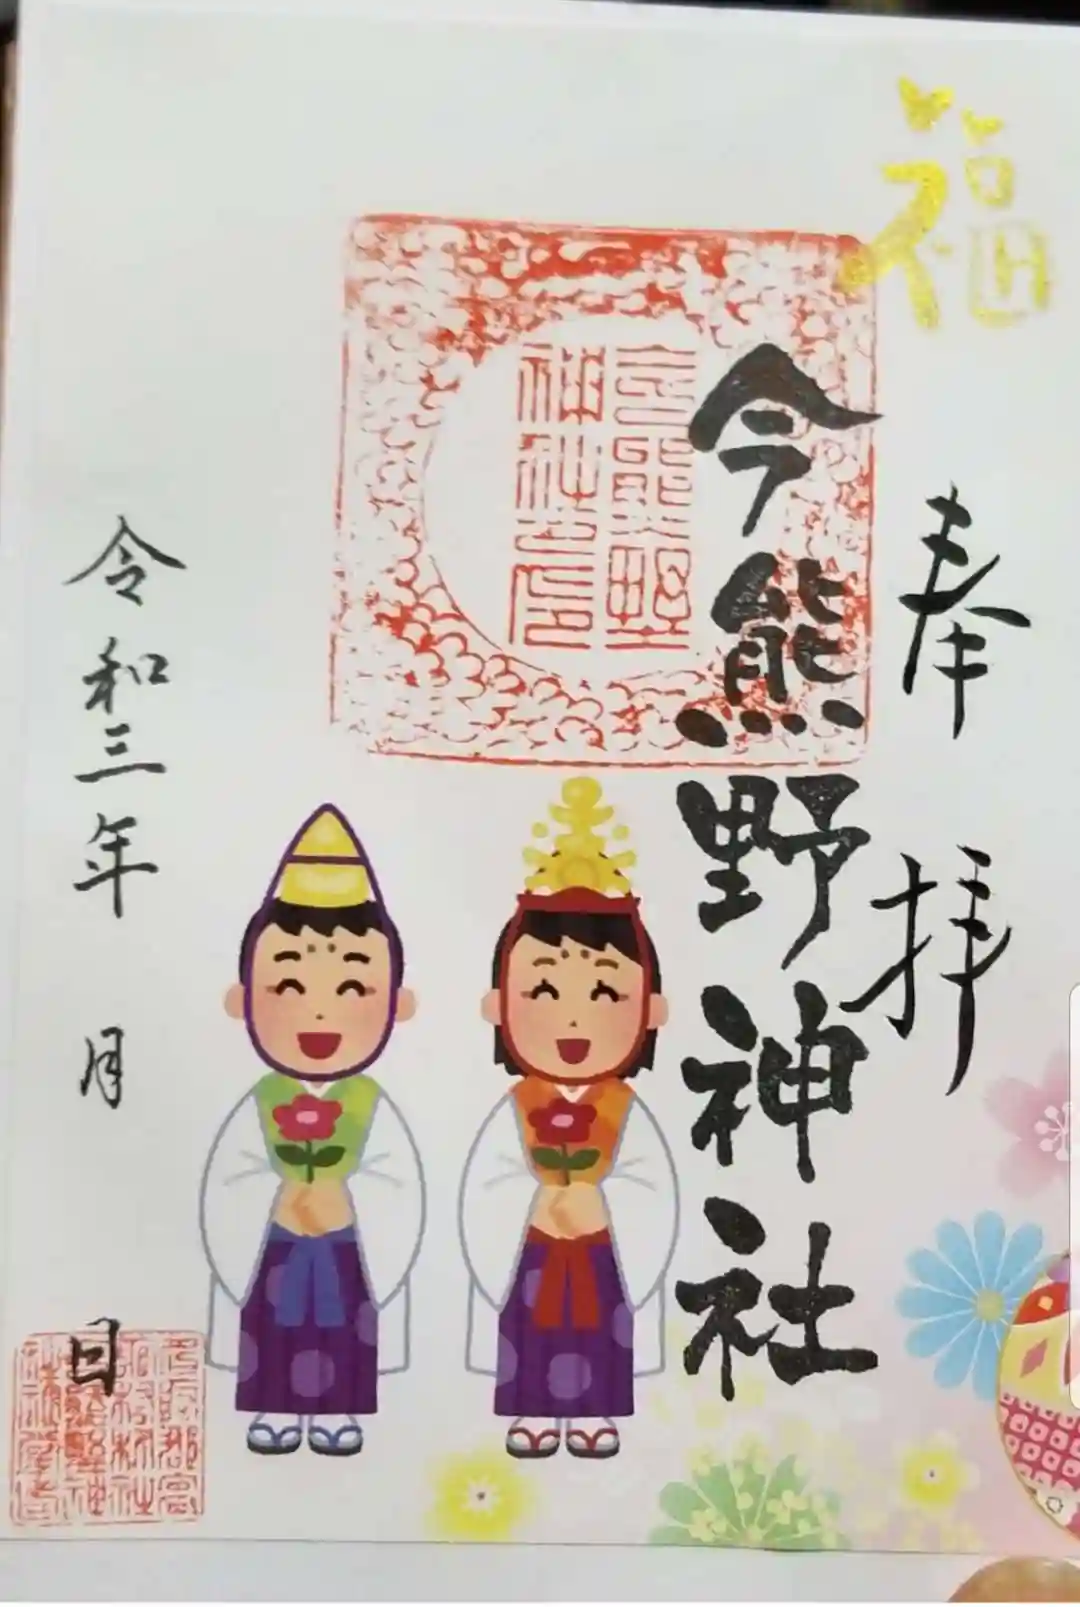 福
奉拝
今熊野神社
今熊野神社之印
令和三年 月 日